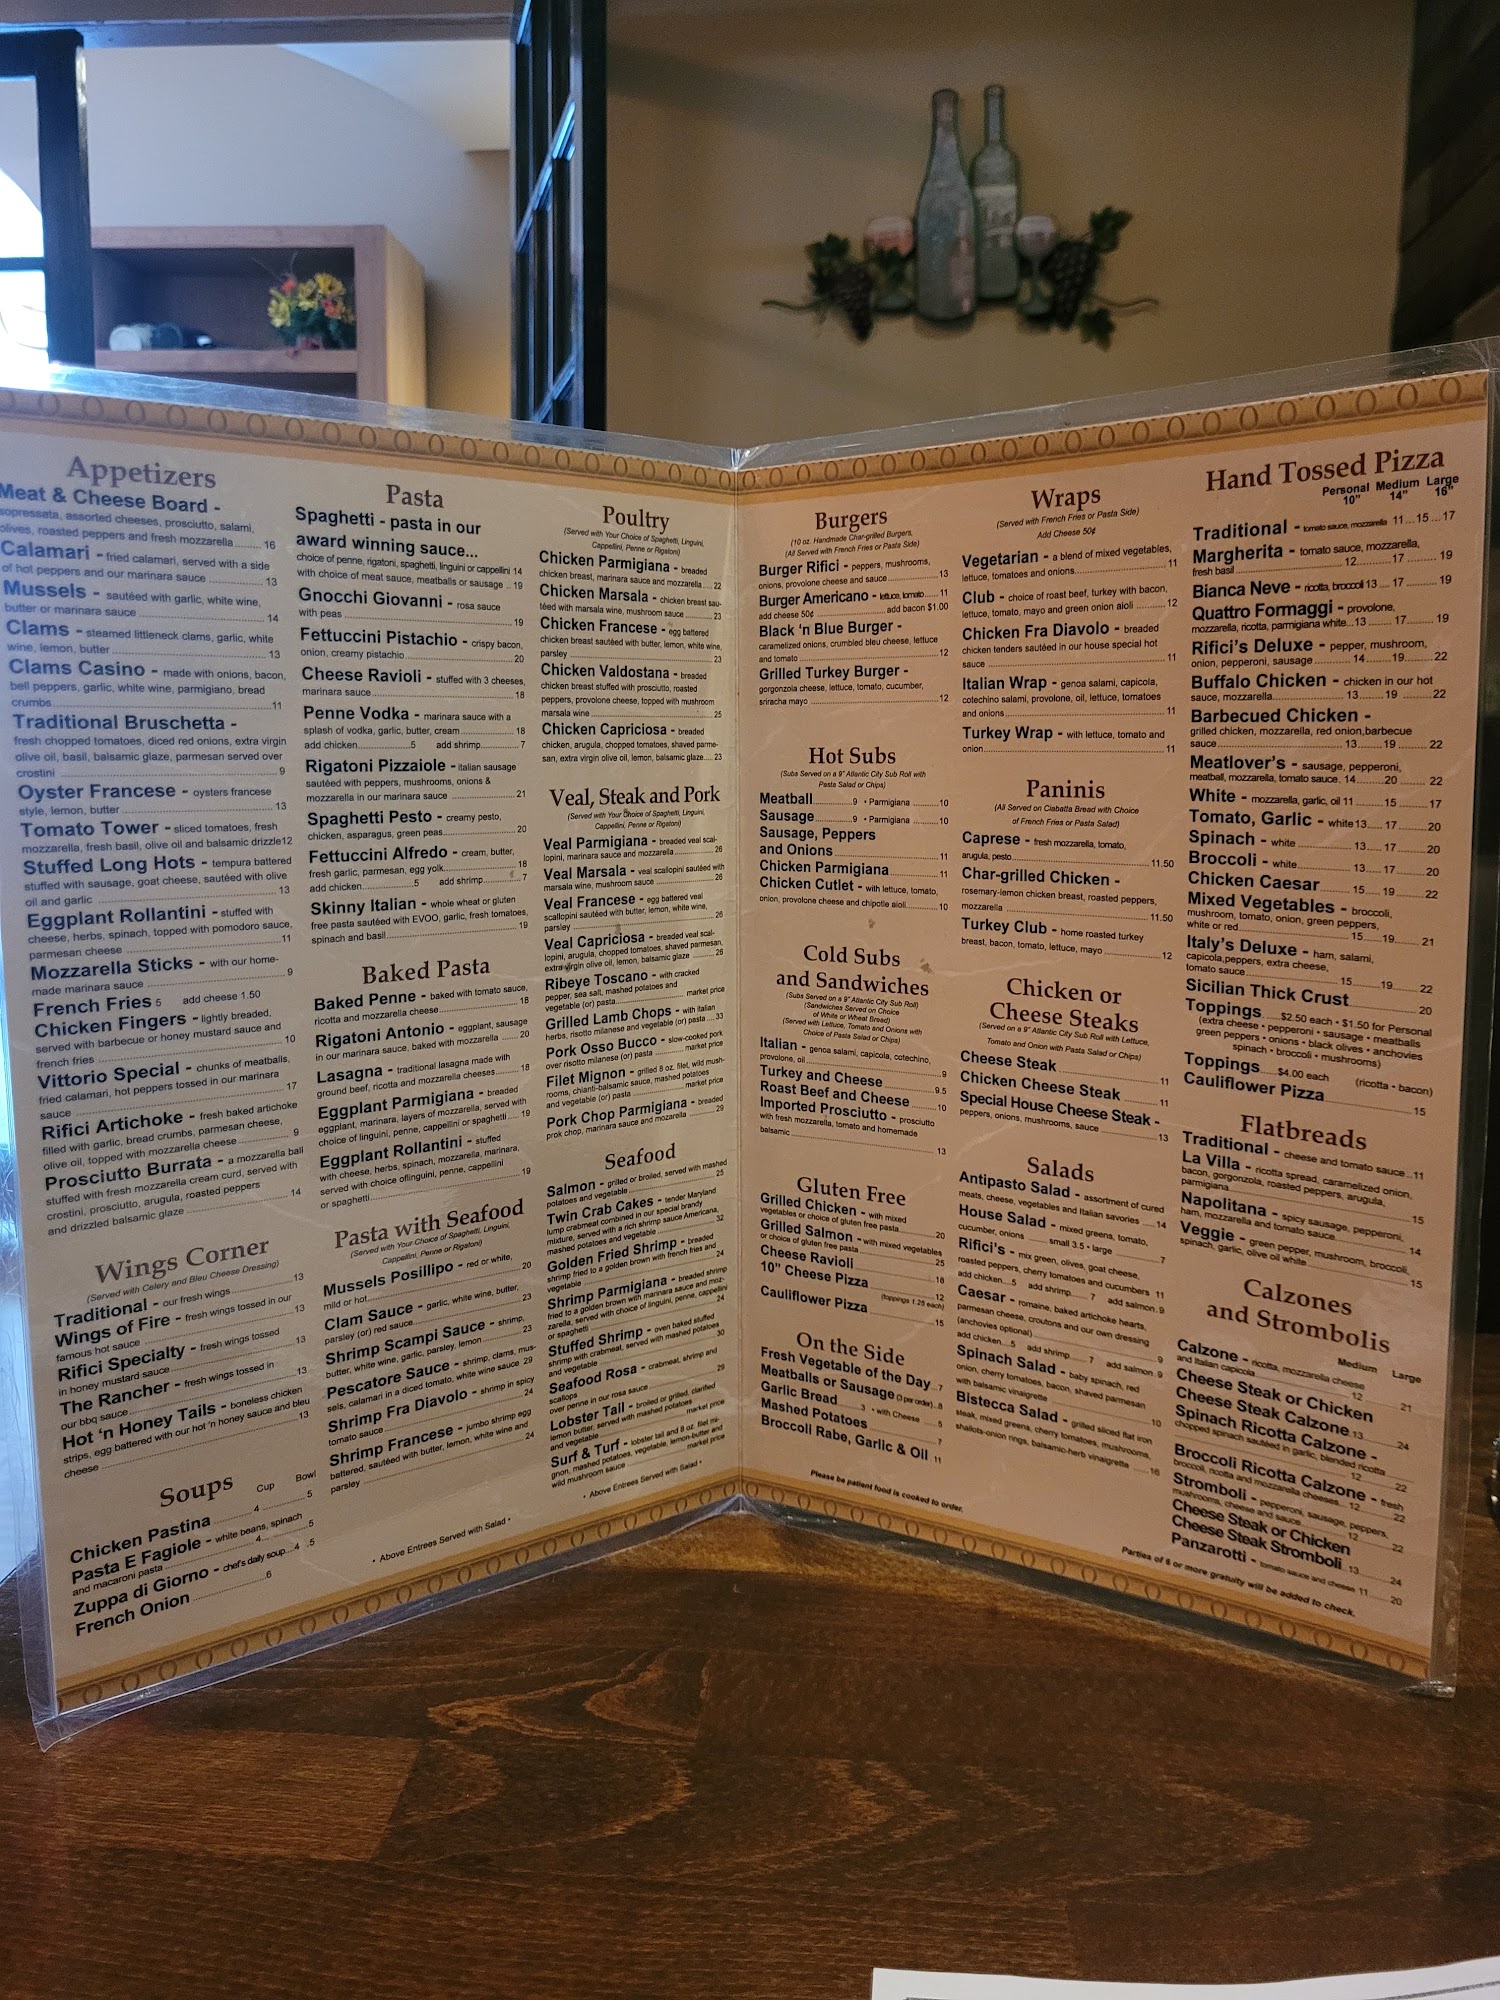 Appetizers
Meat & Cheese Board -
sopressata, assorted cheeses, prosciutto, salami,
olives, roasted peppers and fresh mozzarella 16
Calamari - fried calamari, served with a side
of hot peppers and our marinara sauce 13
Mussels - sautéed with garlic, white wine,
butter or marinara sauce 14
Clams - steamed littleneck clams, garlic, white
wine, lemon, butter 13
Clams Casino - made with onions, bacon,
bell peppers, garlic, white wine, parmigiano, bread
crumbs 11
Traditional Bruschetta -
fresh chopped tomatoes, diced red onions, extra virgin
olive oil, basil, balsamic glaze, parmesan served over
crostini 9
Oyster Francese - oysters francese
style, lemon, butter 13
Tomato Tower - sliced tomatoes, fresh
mozzarella, fresh basil, olive oil and balsamic drizzle 12
Stuffed Long Hots - tempura battered
stuffed with sausage, goat cheese, sautéed with olive
oil and garlic 13
Eggplant Rollantini - stuffed with
cheese, herbs, spinach, topped with pomodoro sauce,
parmesan cheese 11
Mozzarella Sticks - with our home-
made marinara sauce 9
French Fries 5 add cheese 1.50
Chicken Fingers - lightly breaded,
served with barbecue or honey mustard sauce and
french fries 10
Vittorio Special - chunks of meatballs,
fried calamari, hot peppers tossed in our marinara
sauce 17
Rifici Artichoke - fresh baked artichoke
filled with garlic, bread crumbs, parmesan cheese,
olive oil, topped with mozzarella cheese 9
Prosciutto Burrata - a mozzarella ball
stuffed with fresh mozzarella cream curd, served with
crostini, prosciutto, arugula, roasted peppers
and drizzled balsamic glaze 14
Wings Corner
(Served with Celery and Bleu Cheese Dressing)
Traditional - our fresh wings 13
Wings of Fire - fresh wings tossed in our
famous hot sauce 13
Rifici Specialty - fresh wings tossed
in honey mustard sauce 13
The Rancher - fresh wings tossed in
our bbq sauce 13
Hot 'n Honey Tails - boneless chicken
strips, egg battered with our hot 'n honey sauce and bleu
cheese 13
Soups Cup Bowl
Chicken Pastina 4 5
Pasta E Fagiole - white beans, spinach
and macaroni pasta 4 5
Zuppa di Giorno - chef's daily soup 4 5
French Onion 6
Pasta
Spaghetti - pasta in our
award winning sauce...
choice of penne, rigatoni, spaghetti, linguini or cappellini 14
with choice of meat sauce, meatballs or sausage 19
Gnocchi Giovanni - rosa sauce
with peas 19
Fettuccini Pistachio - crispy bacon,
onion, creamy pistachio 20
Cheese Ravioli - stuffed with 3 cheeses,
marinara sauce 18
Penne Vodka - marinara sauce with a
splash of vodka, garlic, butter, cream 18
add chicken 5 add shrimp 7
Rigatoni Pizzaiole - italian sausage
sautéed with peppers, mushrooms, onions &
mozzarella in our marinara sauce 21
Spaghetti Pesto - creamy pesto,
chicken, asparagus, green peas 20
Fettuccini Alfredo - cream, butter,
fresh garlic, parmesan, egg yolk 18
add chicken 5 add shrimp 7
Skinny Italian - whole wheat or gluten
free pasta sautéed with EVOO, garlic, fresh tomatoes,
spinach and basil 19
Baked Pasta
Baked Penne - baked with tomato sauce,
ricotta and mozzarella cheese 18
Rigatoni Antonio - eggplant, sausage
in our marinara sauce, baked with mozzarella 20
Lasagna - traditional lasagna made with
ground beef, ricotta and mozzarella cheeses 18
Eggplant Parmigiana - breaded
eggplant, marinara, layers of mozzarella, served with
choice of linguini, penne, cappellini or spaghetti 19
Eggplant Rollantini - stuffed
with cheese, herbs, spinach, mozzarella, marinara,
served with choice oflinguini, penne, cappellini
or spaghetti 19
Pasta with Seafood
(Served with Your Choice of Spaghetti, Linguini,
Cappellini, Penne or Rigatoni)
Mussels Posillipo - red or white,
mild or hot 20
Clam Sauce - garlic, white wine, butter,
parsley (or) red sauce 23
Shrimp Scampi Sauce - shrimp,
butter, white wine, garlic, parsley, lemon 23
Pescatore Sauce - shrimp, clams, mus-
sels, calamari in a diced tomato, white wine sauce 29
Shrimp Fra Diavolo - shrimp in spicy
tomato sauce 24
Shrimp Francese - jumbo shrimp egg
battered, sautéed with butter, lemon, white wine and
parsley 24
• Above Entrees Served with Salad •
Poultry
(Served with Your Choice of Spaghetti, Linguini,
Cappellini, Penne or Rigatoni)
Chicken Parmigiana - breaded
chicken breast, marinara sauce and mozzarella 22
Chicken Marsala - chicken breast sau-
téed with marsala wine, mushroom sauce 23
Chicken Francese - egg battered
chicken breast sautéed with butter, lemon, white wine,
parsley 23
Chicken Valdostana - breaded
chicken breast stuffed with prosciutto, roasted
peppers, provolone cheese, topped with mushroom
marsala wine 25
Chicken Capriciosa - breaded
chicken, arugula, chopped tomatoes, shaved parme-
san, extra virgin olive oil, lemon, balsamic glaze 23
Veal, Steak and Pork
(Served with Your Choice of Spaghetti, Linguini,
Cappellini, Penne or Rigatoni)
Veal Parmigiana - breaded veal scal-
lopini, marinara sauce and mozzarella 26
Veal Marsala - veal scallopini sautéed with
marsala wine, mushroom sauce 26
Veal Francese - egg battered veal
scallopini sautéed with butter, lemon, white wine,
parsley 26
Veal Capriciosa - breaded veal scal-
lopini, arugula, chopped tomatoes, shaved parmesan,
extra virgin olive oil, lemon, balsamic glaze 26
Ribeye Toscano - with cracked
pepper, sea salt, mashed potatoes and
vegetable (or) pasta market price
Grilled Lamb Chops - with italian
herbs, risotto milanese and vegetable (or) pasta 33
Pork Osso Bucco - slow-cooked pork
over risotto milanese (or) pasta market price
Filet Mignon - grilled 8 oz. filet, wild mush-
rooms, chianti-balsamic sauce, mashed potatoes
and vegetable (or) pasta market price
Pork Chop Parmigiana - breaded
prok chop, marinara sauce and mozarella 29
Seafood
Salmon - grilled or broiled, served with mashed
potatoes and vegetable 25
Twin Crab Cakes - tender Maryland
lump crabmeat combined in our special brandy
mixture, served with a rich shrimp sauce Americana,
mashed potatoes and vegetable 32
Golden Fried Shrimp - breaded
shrimp fried to a golden brown with french fries and
vegetable 24
Shrimp Parmigiana - breaded shrimp
fried to a golden brown with marinara sauce and moz-
zarella, served with choice of linguini, penne, cappellini
or spaghetti 24
Stuffed Shrimp - oven baked stuffed
shrimp with crabmeat, served with mashed potatoes
and vegetable 30
Seafood Rosa - crabmeat, shrimp and
scallops
over penne in our rosa sauce 29
Lobster Tail - broiled or grilled, clarified
lemon butter, served with mashed potatoes
and vegetable market price
Surf & Turf - lobster tail and 8 oz. filet mi-
gnon, mashed potatoes, vegetable, lemon-butter and
wild mushroom sauce market price
• Above Entrees Served with Salad •
Burgers
(10 oz. Handmade Char-grilled Burgers,
(All Served with French Fries or Pasta Side)
Burger Rifici - peppers, mushrooms,
onions, provolone cheese and sauce 13
Burger Americano - lettuce, tomato 11
add cheese 50¢ add bacon $1.00
Black 'n Blue Burger -
caramelized onions, crumbled bleu cheese, lettuce
and tomato 12
Grilled Turkey Burger -
gorgonzola cheese, lettuce, tomato, cucumber,
sriracha mayo 12
Hot Subs
(Subs Served on a 9" Atlantic City Sub Roll with
Pasta Salad or Chips)
Meatball 9 • Parmigiana 10
Sausage 9 • Parmigiana 10
Sausage, Peppers
and Onions 11
Chicken Parmigiana 11
Chicken Cutlet - with lettuce, tomato,
onion, provolone cheese and chipotle aioli 10
Cold Subs
and Sandwiches
(Subs Served on a 9" Atlantic City Sub Roll)
(Sandwiches Served on Choice
of White or Wheat Bread)
(Served with Lettuce, Tomato and Onions with
Choice of Pasta Salad or Chips)
Italian - genoa salami, capicola, cotechino,
provolone, oil 9
Turkey and Cheese 9.5
Roast Beef and Cheese 10
Imported Prosciutto - prosciutto
with fresh mozzarella, tomato and homemade
balsamic 13
Gluten Free
Grilled Chicken - with mixed
vegetables or choice of gluten free pasta 20
Grilled Salmon - with mixed vegetables
or choice of gluten free pasta 25
Cheese Ravioli 18
10" Cheese Pizza 12
(toppings 1.25 each)
Cauliflower Pizza 15
On the Side
Fresh Vegetable of the Day 7
Meatballs or Sausage (3 per order) 8
Garlic Bread 3 • with Cheese 5
Mashed Potatoes 7
Broccoli Rabe, Garlic & Oil 11
Please be patient food is cooked to order.
Wraps
(Served with French Fries or Pasta Side)
Add Cheese 50¢
Vegetarian - a blend of mixed vegetables,
lettuce, tomatoes and onions 11
Club - choice of roast beef, turkey with bacon,
lettuce, tomato, mayo and green onion aioli 12
Chicken Fra Diavolo - breaded
chicken tenders sautéed in our house special hot
sauce 11
Italian Wrap - genoa salami, capicola,
cotechino salami, provolone, oil, lettuce, tomatoes
and onions 11
Turkey Wrap - with lettuce, tomato and
onion 11
Paninis
(All Served on Ciabatta Bread with Choice
of French Fries or Pasta Salad)
Caprese - fresh mozzarella, tomato,
arugula, pesto 11.50
Char-grilled Chicken -
rosemary-lemon chicken breast, roasted peppers,
mozzarella 11.50
Turkey Club - home roasted turkey
breast, bacon, tomato, lettuce, mayo 12
Chicken or
Cheese Steaks
(Served on a 9" Atlantic City Sub Roll with Lettuce,
Tomato and Onion with Pasta Salad or Chips)
Cheese Steak 11
Chicken Cheese Steak 11
Special House Cheese Steak -
peppers, onions, mushrooms, sauce 13
Salads
Antipasto Salad - assortment of cured
meats, cheese, vegetables and Italian savories 14
House Salad - mixed greens, tomato,
cucumber, onions small 3.5 • large 7
Rifici's - mix green, olives, goat cheese,
roasted peppers, cherry tomatoes and cucumbers 11
add chicken 5 add shrimp 7 add salmon 9
Caesar - romaine, baked artichoke hearts,
parmesan cheese, croutons and our own dressing
(anchovies optional) 9
add chicken 5 add shrimp 7 add salmon 9
Spinach Salad - baby spinach, red
onion, cherry tomatoes, bacon, shaved parmesan
with balsamic vinaigrette 10
Bistecca Salad - grilled sliced flat iron
steak, mixed greens, cherry tomatoes, mushrooms,
shallots-onion rings, balsamic-herb vinaigrette 16
Hand Tossed Pizza
Personal Medium Large
10" 14" 16"
Traditional - tomato sauce, mozzarella 11 15 17
Margherita - tomato sauce, mozzarella,
fresh basil 12 17 19
Bianca Neve - ricotta, broccoli 13 17 19
Quattro Formaggi - provolone,
mozzarella, ricotta, parmigiana white 13 17 19
Rifici's Deluxe - pepper, mushroom,
onion, pepperoni, sausage 14 19 22
Buffalo Chicken - chicken in our hot
sauce, mozzarella 13 19 22
Barbecued Chicken -
grilled chicken, mozzarella, red onion,barbecue
sauce 13 19 22
Meatlover's - sausage, pepperoni,
meatball, mozzarella, tomato sauce 14 20 22
White - mozzarella, garlic, oil 11 15 17
Tomato, Garlic - white 13 17 20
Spinach - white 13 17 20
Broccoli - white 13 17 20
Chicken Caesar 15 19 22
Mixed Vegetables - broccoli,
mushroom, tomato, onion, green peppers,
white or red 15 19 21
Italy's Deluxe - ham, salami,
capicola,peppers, extra cheese,
tomato sauce 15 19 22
Sicilian Thick Crust 20
Toppings $2.50 each • $1.50 for Personal
(extra cheese • pepperoni • sausage • meatballs
green peppers • onions • black olives • anchovies
spinach • broccoli • mushrooms)
Toppings $4.00 each (ricotta • bacon)
Cauliflower Pizza 15
Flatbreads
Traditional - cheese and tomato sauce 11
La Villa - ricotta spread, caramelized onion,
bacon, gorgonzola, roasted peppers, arugula,
parmigiana 15
Napolitana - spicy sausage, pepperoni,
ham, mozzarella and tomato sauce 14
Veggie - green pepper, mushroom, broccoli,
spinach, garlic, olive oil white 15
Calzones
and Strombolis
Medium Large
Calzone - ricotta, mozzarella cheese
and Italian capicola 12 21
Cheese Steak or Chicken
Cheese Steak Calzone 13 24
Spinach Ricotta Calzone -
chopped spinach sautéed in garlic, blended ricotta
12 22
Broccoli Ricotta Calzone - fresh
broccoli, ricotta and mozzarella cheeses 12 22
Stromboli - pepperoni, sausage, peppers,
mushrooms, cheese and sauce 12 22
Cheese Steak or Chicken
Cheese Steak Stromboli 13 24
Panzarotti - tomato sauce and cheese 11 20
Parties of 6 or more gratuity will be added to check.